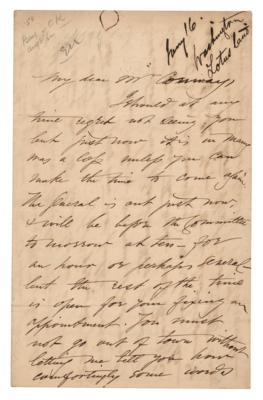 Jany 16.
Washington
My dear Mr Conway,
I should at any
time regret not seeing you
but just now it is in many
ways a loss unless you can
make the time to come again.
The General is out just now,
& will be before the Committee
to morrow at ten - for
an hour or perhaps several
but the rest of the time
is open for your fixing an
appointment. You must
not go out of town without
letting me tell you how
comfortingly some words